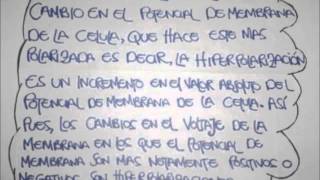 CAMBIO EN EL POTENCIAL DE MEMBRANA
DE LA CELULA, QUE HACE ESTE MAS
POLARIZADA ES DECIR, LA HIPERPOLARIZACIÓN
ES UN INCREMENTO EN EL VALOR ABSOLUTO DEL
POTENCIAL DE MEMBRANA DE LA CELULA. ASÍ
PUES, LOS CAMBIOS EN EL VOLTAJE DE LA
MEMBRANA EN LOS QUE EL POTENCIAL DE
MEMBRANA SON MAS NOTAMENTE POSITIVOS O
NEGATIVOS SON